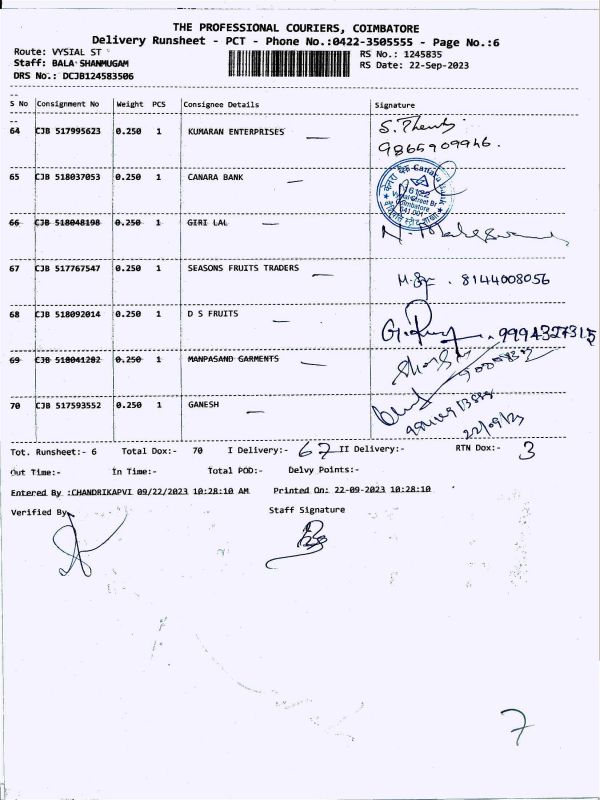 THE PROFESSIONAL COURIERS, COIMBATORE
Delivery Runsheet - PCT - Phone No.:0422-3505555 - Page No.:6
Route: VYSIAL ST
RS No.: 1245835
Staff: BALA SHANMUGAM
RS Date: 22-Sep-2023
DRS No.: DCJB124583506
S No Consignment No Weight PCS Consignee Details Signature
64 CJB 517995623 0.250 1 KUMARAN ENTERPRISES
9865909946.
65 CJB 518037053 0.250 1 CANARA BANK
66 CJB 518048198 0.250 1 GIRI LAL
67 CJB 517767547 0.250 1 SEASONS FRUITS TRADERS
8144008056
68 CJB 518092014 0.250 1 D S FRUITS
9994327315
69 CJB 518041282 0.250 1 MANPASAND GARMENTS
70 CJB 517593552 0.250 1 GANESH
22/09/23
Tot. Runsheet:- 6 Total Dox:- 70 I Delivery:- 67 II Delivery:- RTN Dox:- 3
Out Time:- In Time:- Total POD:- Delvy Points:-
Entered By :CHANDRIKAPVI 09/22/2023 10:28:10 AM Printed On: 22-09-2023 10:28:10
Verified By
Staff Signature
7